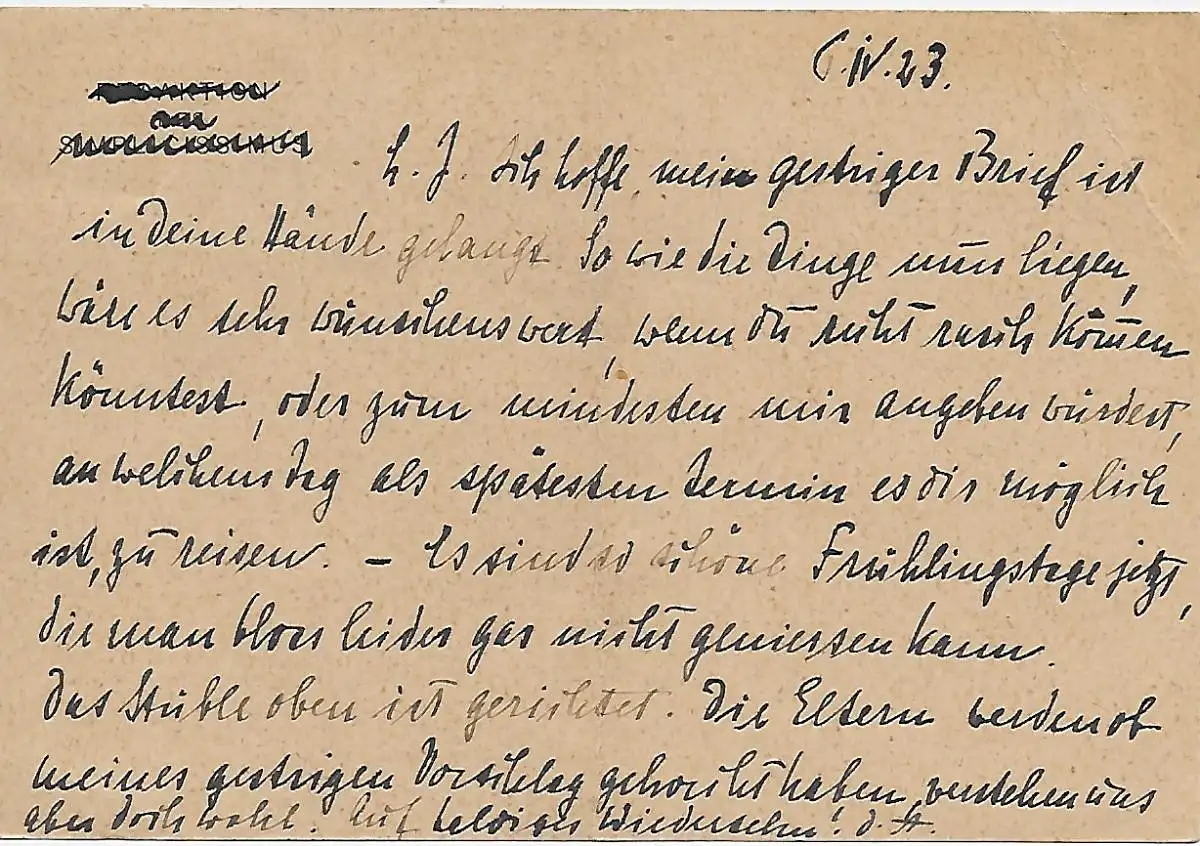 6.IV.23.
REDAKTION
SIMPLICISSIMUS
L. J. Ich hoffe, mein gestriger Brief ist
in Deine Hände gelangt. So wie die Dinge nun liegen,
wäre es sehr wünschenswert, wenn Du recht rasch kom̄en
könntest, oder zum mindesten mir angeben würdest,
an welchem Tag als spätesten Termin es dir möglich
ist, zu reisen. – Es sind so schöne Frühlingstage jetzt,
die man bloss leider gar nicht geniessen kann.
Das Stüble oben ist gerichtet. Die Eltern werden ob
meines gestrigen Vorschlag gehorcht haben, verstehen uns
aber doch wohl. Auf baldiges Wiedersehn! d. A.